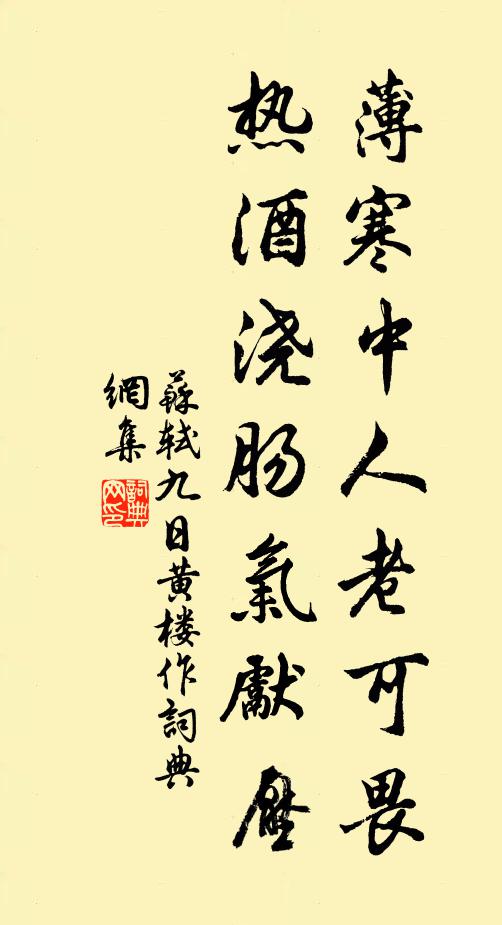 薄寒中人老可畏
热酒浇肠氣獻壓
蘇轼九日黄楼作詞典
網集
詞典
网印